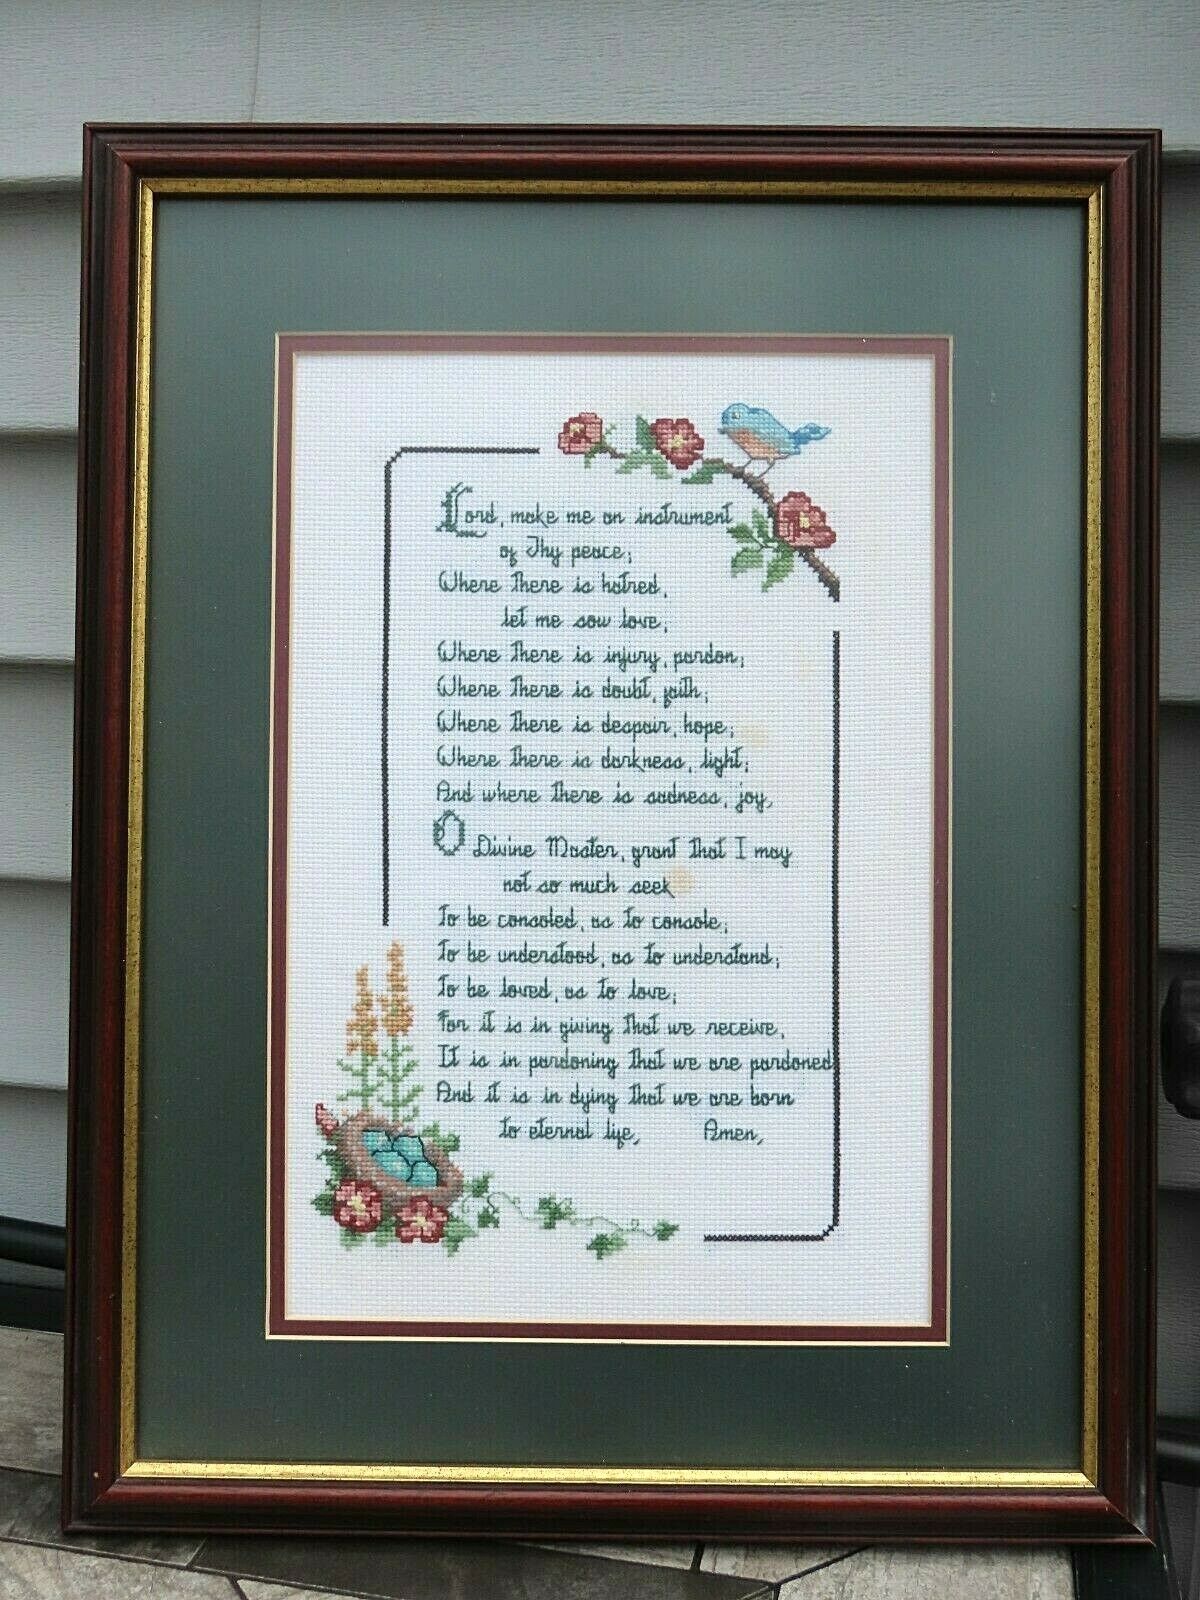 Lord, make me an instrument
of Thy peace;
Where there is hatred,
let me sow love;
Where there is injury, pardon;
Where there is doubt, faith;
Where there is despair, hope;
Where there is darkness, light;
And where there is sadness, joy,
O Divine Master, grant that I may
not so much seek
To be consoled, as to console;
To be understood, as to understand;
To be loved, as to love;
For it is in giving that we receive,
It is in pardoning that we are pardoned
And it is in dying that we are born
to eternal life, Amen,